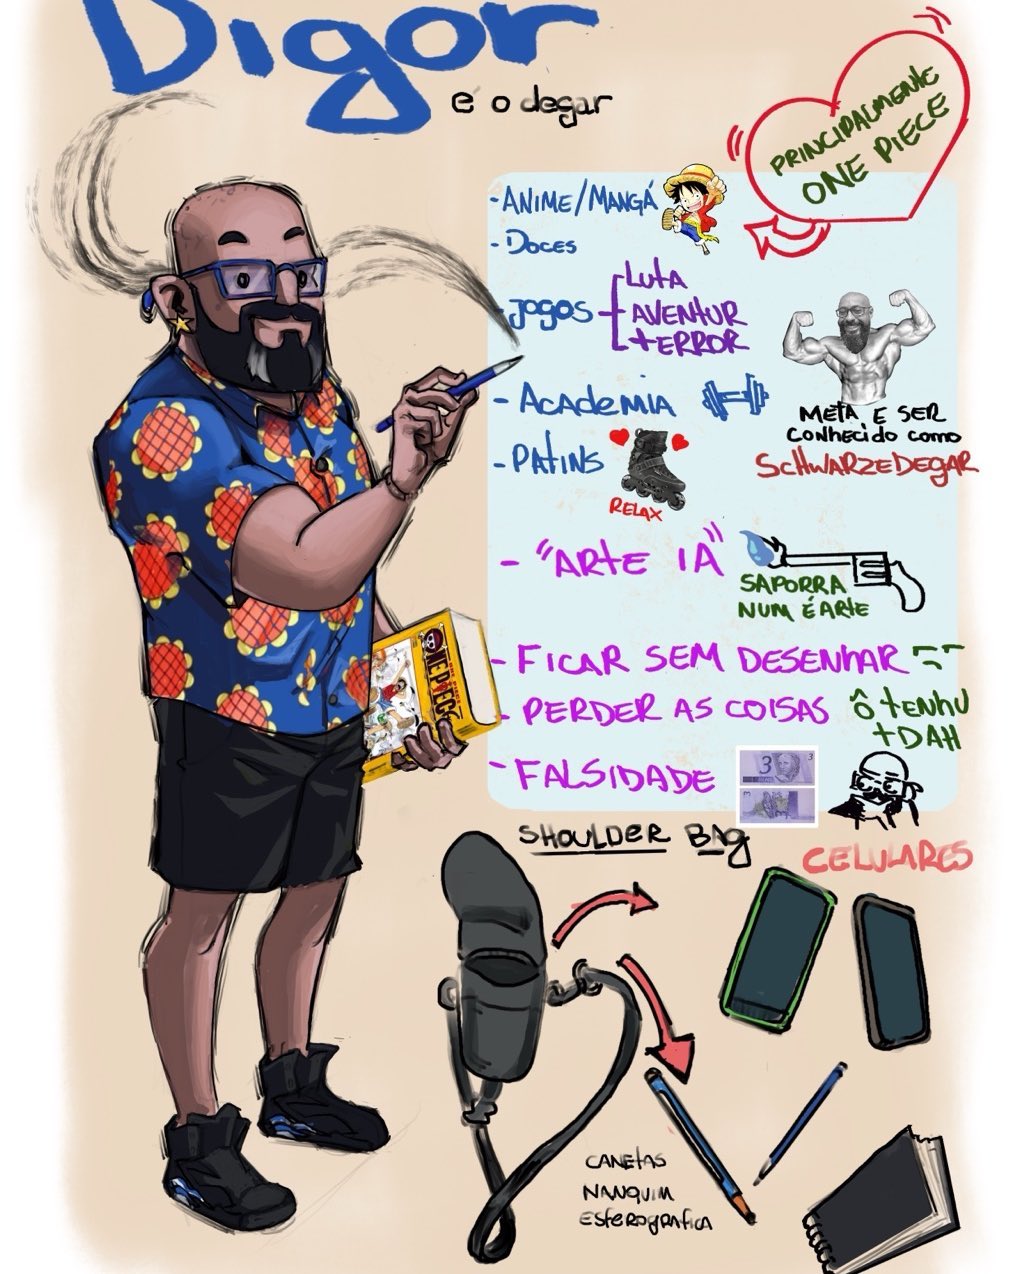 Digor
e o degar
PRINCIPALMENTE
ONE PIECE
- ANIME/MANGÁ
- DOCES
- JOGOS
LUTA
AVENTUR
TERROR
- ACADEMIA
META E SER
CONHECIDO COMO
SCHWARZEDEGAR
- PATINS
RELAX
- "ARTE IA"
SAPORRA
NUM É ARTE
- FICAR SEM DESENHAR
- PERDER AS COISAS
Ô TENHU
TDAH
- FALSIDADE
3
3
3
ONE PIECE
SHOULDER BAg
CELULARES
CANETAS
NANQUIM
ESFEROGRAFICA